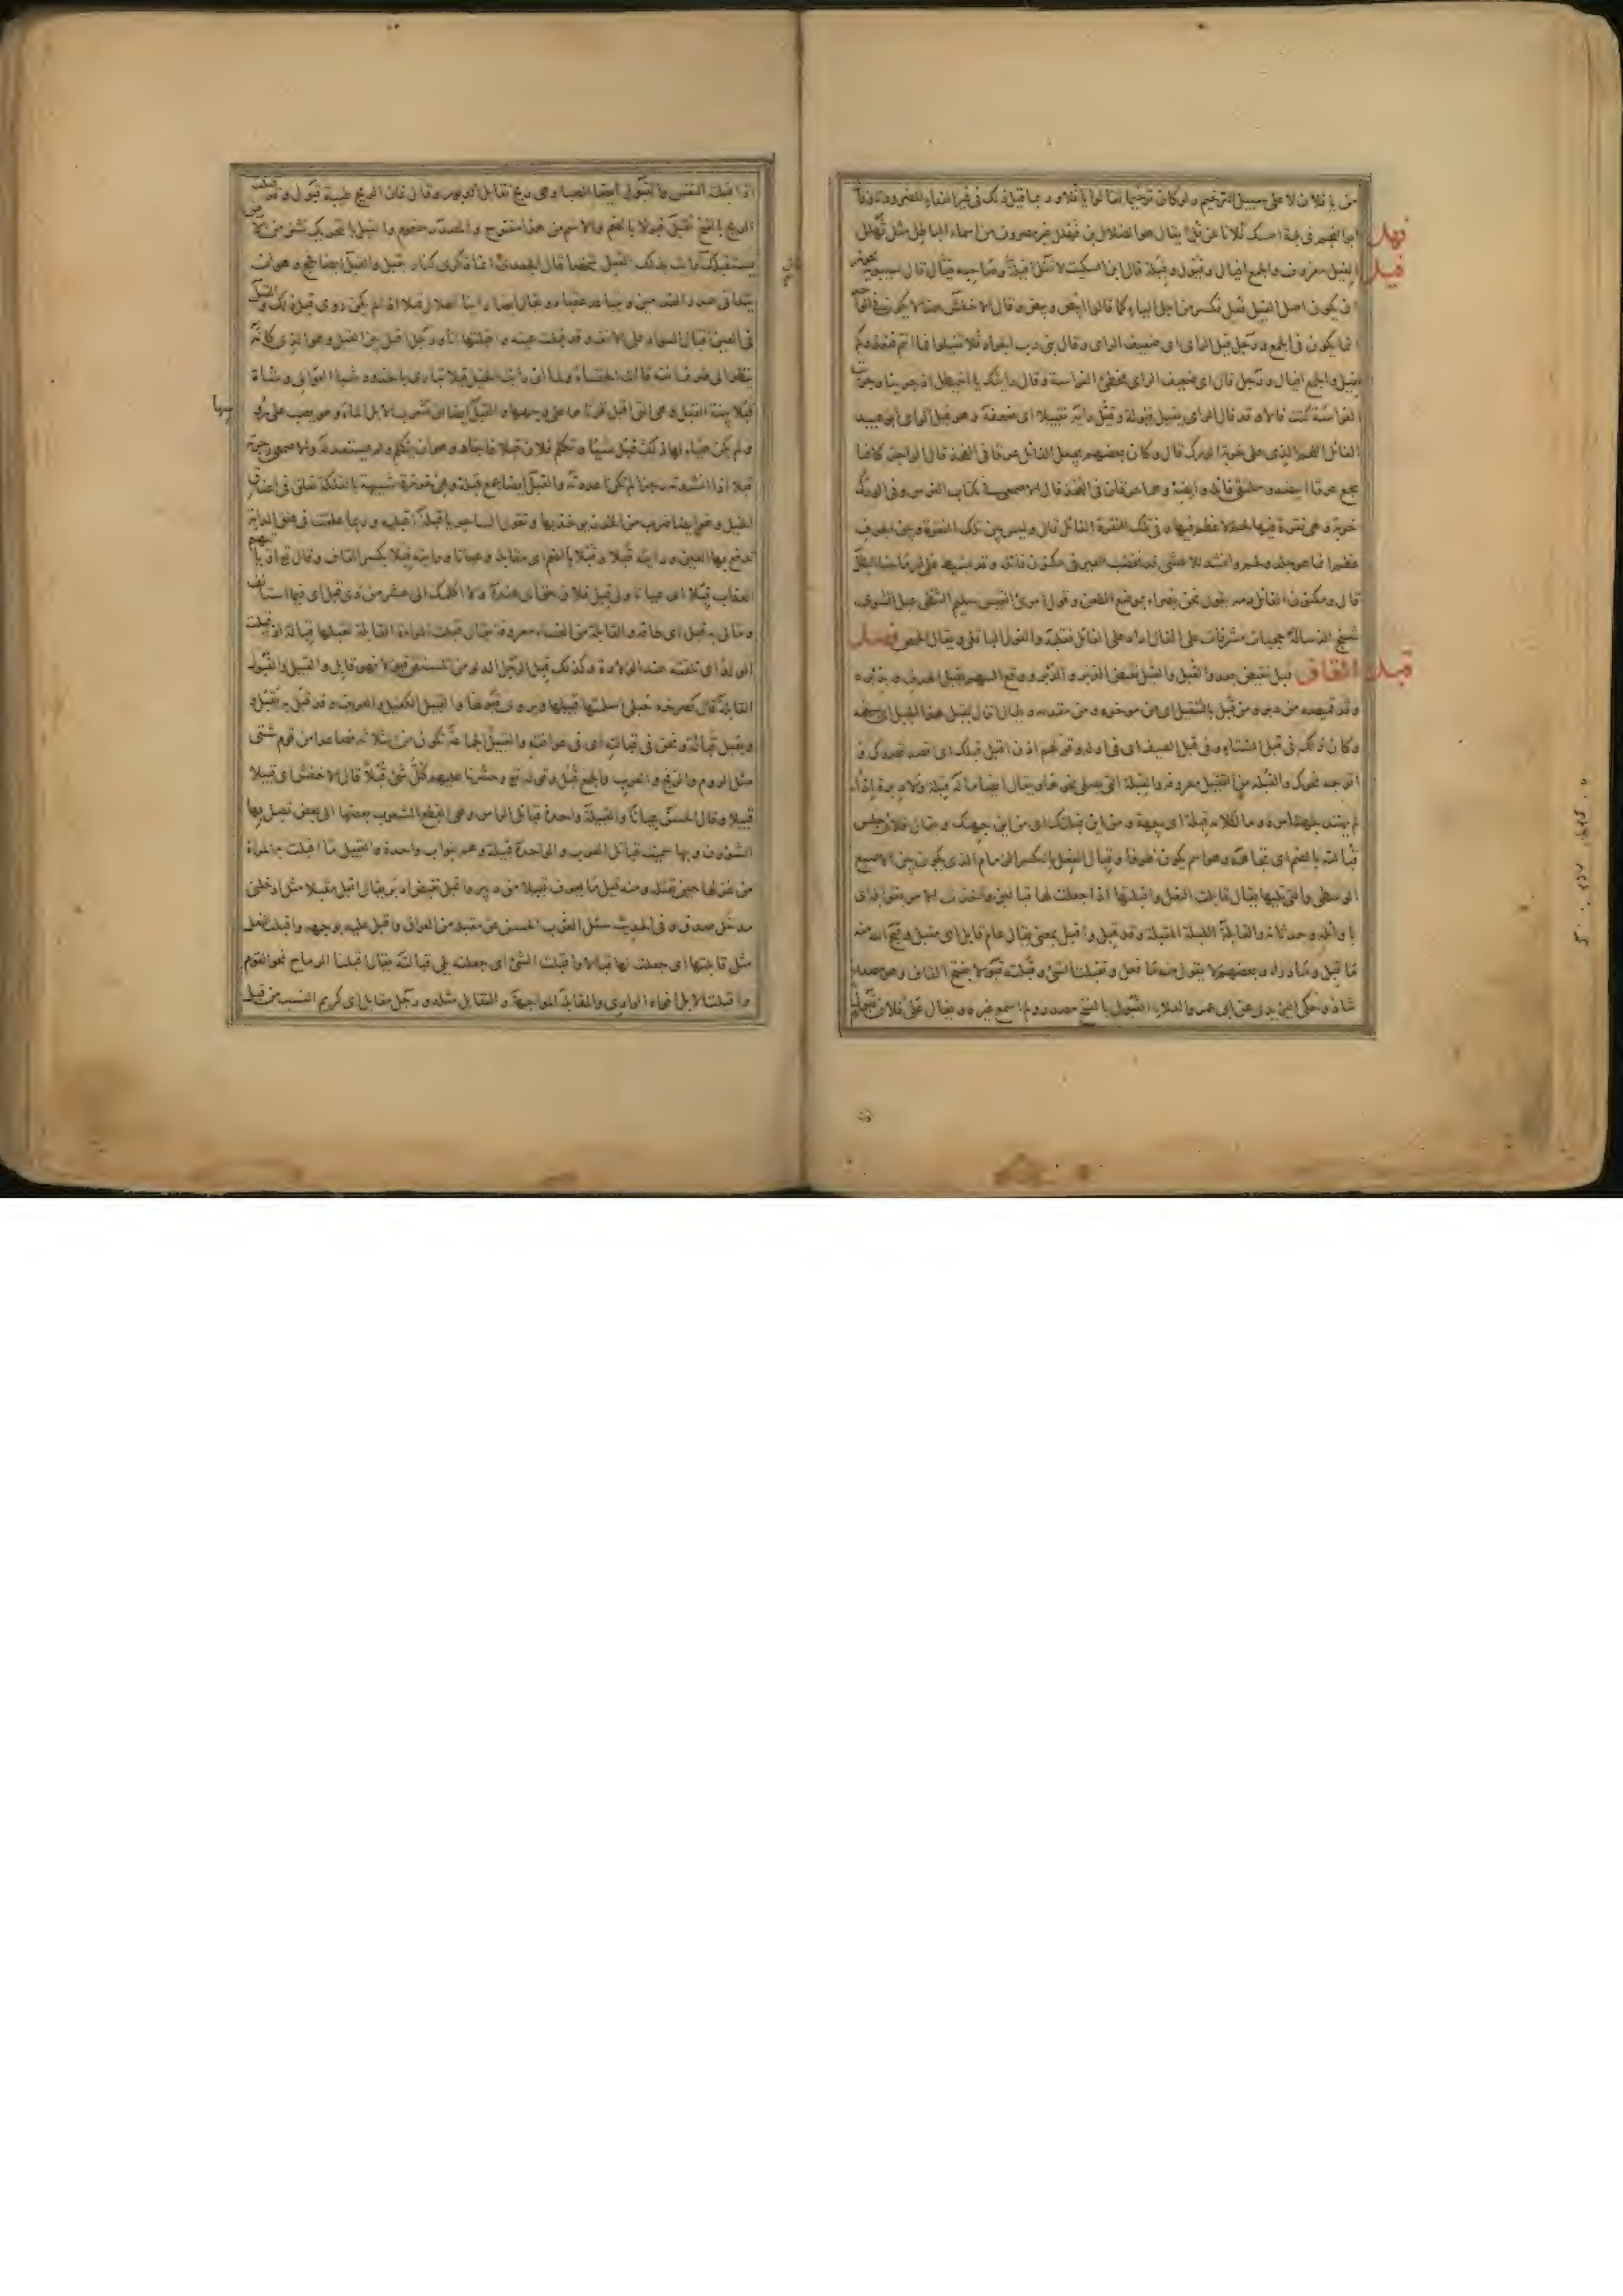 من يا فلان لا على سبيل الترخيم ولو كان ترخيما لقالوا يا فلا وربما قيل ذلك في غير النداء للضرورة قال
ابو النجم في لجة امسك فلانا عن فل يقال هو الضلال بن فهلل غير مصروف من اسماء الباطل مثل تهلل
فهل
الفيل معروف والجمع افيال وفيول وفيلة قال ابن السكيت لا تقل افيلة وصاحبه فيال قال سيبويه يجوز
فيل
ان يكون اصل الفيل فعل فكسر من اجل الياء كما قالوا ابيض وبيض وقال الاخفش هذا لا يكون في الواحد
انما يكون في الجمع ورجل فيل الراي اى ضعيف الراي وقال بنى رب الجواد فلا تفيلوا فما انتم فنعذركم
لفيل والجمع افيال ورجل فال اى ضعيف الراى مخطئ الفراسة وقال رايتك يا اخيطل اذ جرينا وجربت
الفراسة كنت فالا وقد فال الراى يفيل فيولة وفيل رايه تفييلا اى ضعفه وهو فيل الراى ابو عبيد
الفائل اللحم الذى على خربة الورك قال وكان بعضهم يجعل الفائل عرقا فى الفخذ قال الراجز كانما
يجمع عرقا ابيضه وملتقى فائله وابضه وهما عرقان فى الفخذ قال الاصمعى فى كتاب الفرس وفى الورك
خربة وهى نقرة فيها لحم لا عظم فيها وفى تلك النقرة الفائل قال وليس بين تلك النقرة وبين الجوف
عظم انما هو جلد ولحم وانشد للاعشى قد نخضب العير فى مكنون فائله وقد يشيط على ارماحنا البطل
قال ومكنون الفائل دمه يقول نحن بصراء بموضع الطعن وقول امرئ القيس سليم الشظى عبل الشوى
شنج النسا له حجبات مشرفات على الفال اراد على الفائل فقلبه
فصل
القاف قبل نقيض بعد والقبل والقبل نقيض الدبر والدبر ووقع السهم بقبل الهدف وبدبره
قبل
وقد قميصه من دبر ومن قبل بالتثقيل اى من مؤخره ومن مقدمه ويقال انزل بقبل هذا الجبل اى بسفحه
وكان ذلك فى قبل الشتاء وفى قبل الصيف اى فى اوله وقولهم اذن اقبل قبلك اى اقصد قصدك و
اتوجه نحوك والقبلة من التقبيل معروفة والقبلة التى يصلى نحوها ويقال ايضا ما له قبلة ولا دبرة اذا
لم يهتد لجهة امره وما لكلامه قبلة اى جهة ومن اين قبلتك اى من اين جهتك ويقال فلان جلس
قبالته بالضم اى تجاهه وهو اسم يكون ظرفا وقبال النعل بالكسر الزمام الذى يكون بين الاصبع
الوسطى والتى تليها يقال قابلت النعل واقبلتها اذا جعلت لها قبالين
والقابلة الليلة المقبلة وقد قبل واقبل بمعنى يقال عام قابل اى مقبل وقبح الله منه
ما قبل وما دبر وبعضهم لا يقول منه فعل وتقبلت الشئ وقبلته قبولا بفتح القاف وهو مصدر
شاذ وحكى اليزيدى عن ابى عمرو بن العلاء القبول بالفتح مصدر ولم اسمع غيره ويقال على فلان قبول
اذا قبلته النفس والقبول ايضا الصبا وهى ريح تقابل الدبور وقال فان الريح طيبة قبول وقد قبلت
الريح بالفتح تقبل قبولا بالضم والاسم من هذا مفتوح والمصدر مضموم والقبل بالتحريك نشز من الارض
يستقبلك يقال رايت بذلك القبل شخصا قال الجعدى انما ذكرى كنار بقبل والقبل ايضا فحج وهو ان
يتدانى صدر القدمين ويتباعد عقباهما ويقال ايضا راينا الهلال قبلا اذا لم يكن روى قبل ذلك والقبل
فى العين اقبال السواد على الانف وقد قبلت عينه واقبلتها انا ورجل اقبل بين القبل وهو الذى كانه
ينظر الى طرف انفه قالت الخنساء ولما ان رايت الخيل قبلا تبارى بالخدود شبا العوالى وشاة
قبلاء بينة القبل وهى التى اقبل قرناها على وجهها والقبل ايضا ان تشرب الابل الماء وهو يصب على رؤسها
ولم يكن هيئ لها ذلك قبل شيئا وتكلم فلان قبلا فاجاد وهو ان يتكلم ولم يستعد له والاصمعى رجزته
قبلا اذا انشدته رجزا لم تكن اعددته والقبل ايضا جمع قبلة وهى شبيهة بالفلكة تعلق فى اعناق
الخيل وهو ايضا ضرب من الخرز يوخذ بها وتقول الساحرة يا قبلة اقبليه وربما علقت فى عنق الدابة
تدفع بها العين ورايته قبلا وقبلا بالضم اى مقابلة وعيانا ورايته قبلا بكسر القاف وقال تعالى او ياتيهم
العذاب قبلا اى عيانا ولى قبل فلان حق اى عنده ولا اكلمك الى عشر من ذى قبل اى فيما استانف
وما لى به قبل اى طاقة والقابلة من النساء معروفة يقال قبلت المراة القابلة تقبلها قبالة اذا قبلت
الولد اى تلقته عند الولادة وكذلك قبل الرجل الدلو من المستقى قبولا فهو قابل والقبيل والقبول
القابلة قال كصرخة حبلى اسلمتها قبيلها ويروى قبولها والقبيل الكفيل والعريف وقد قبل به يقبل و
يقبل قبالة ونحن فى قبالته اى فى عرافته والقبيل الجماعة تكون من الثلاثة فصاعدا من قوم شتى
مثل الروم والزنج والعرب والجمع قبل وقوله تع وحشرنا عليهم كل شئ قبلا قال الاخفش اى قبيلا
قبيلا وقال الحسن عيانا والقبيلة واحدة قبائل الراس وهى القطع المشعوب بعضها الى بعض تصل بها
الشؤون وبها سميت قبائل العرب والواحدة قبيلة وهم بنو اب واحدة والقبيل ما اقبلت به المراة
من غزلها حين تفتله ومنه قيل ما يعرف قبيلا من دبير واقبل نقيض ادبر يقال اقبل مقبلا مثل ادخلنى
مدخل صدق وفى الحديث سئل الحسن عن مقبله من العراق واقبل عليه بوجهه واقبلت النعل
مثل قابلتها اى جعلت لها قبالا واقبلت الشئ اى جعلته يلى قبالته يقال اقبلنا الرماح نحو القوم
واقبلت الابل افواه الوادى والمقابلة المواجهة والتقابل مثله ورجل مقابل اى كريم النسب من قبل